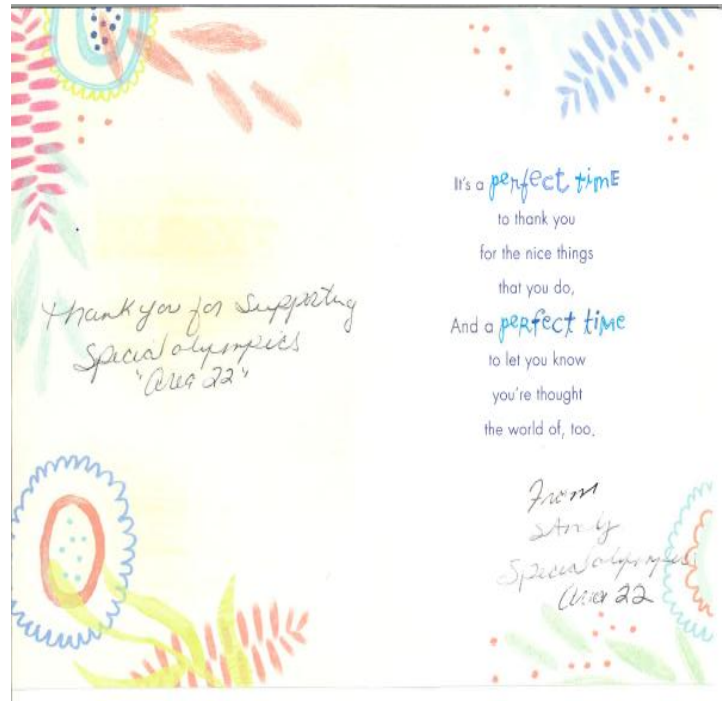 Thank you for Supporting
Special olympics
"Area 22"
It's a perfect timE
to thank you
for the nice things
that you do,
And a peRfect tiMe
to let you know
you're thought
the world of, too.
From
SAndy
Special olympics
Area 22